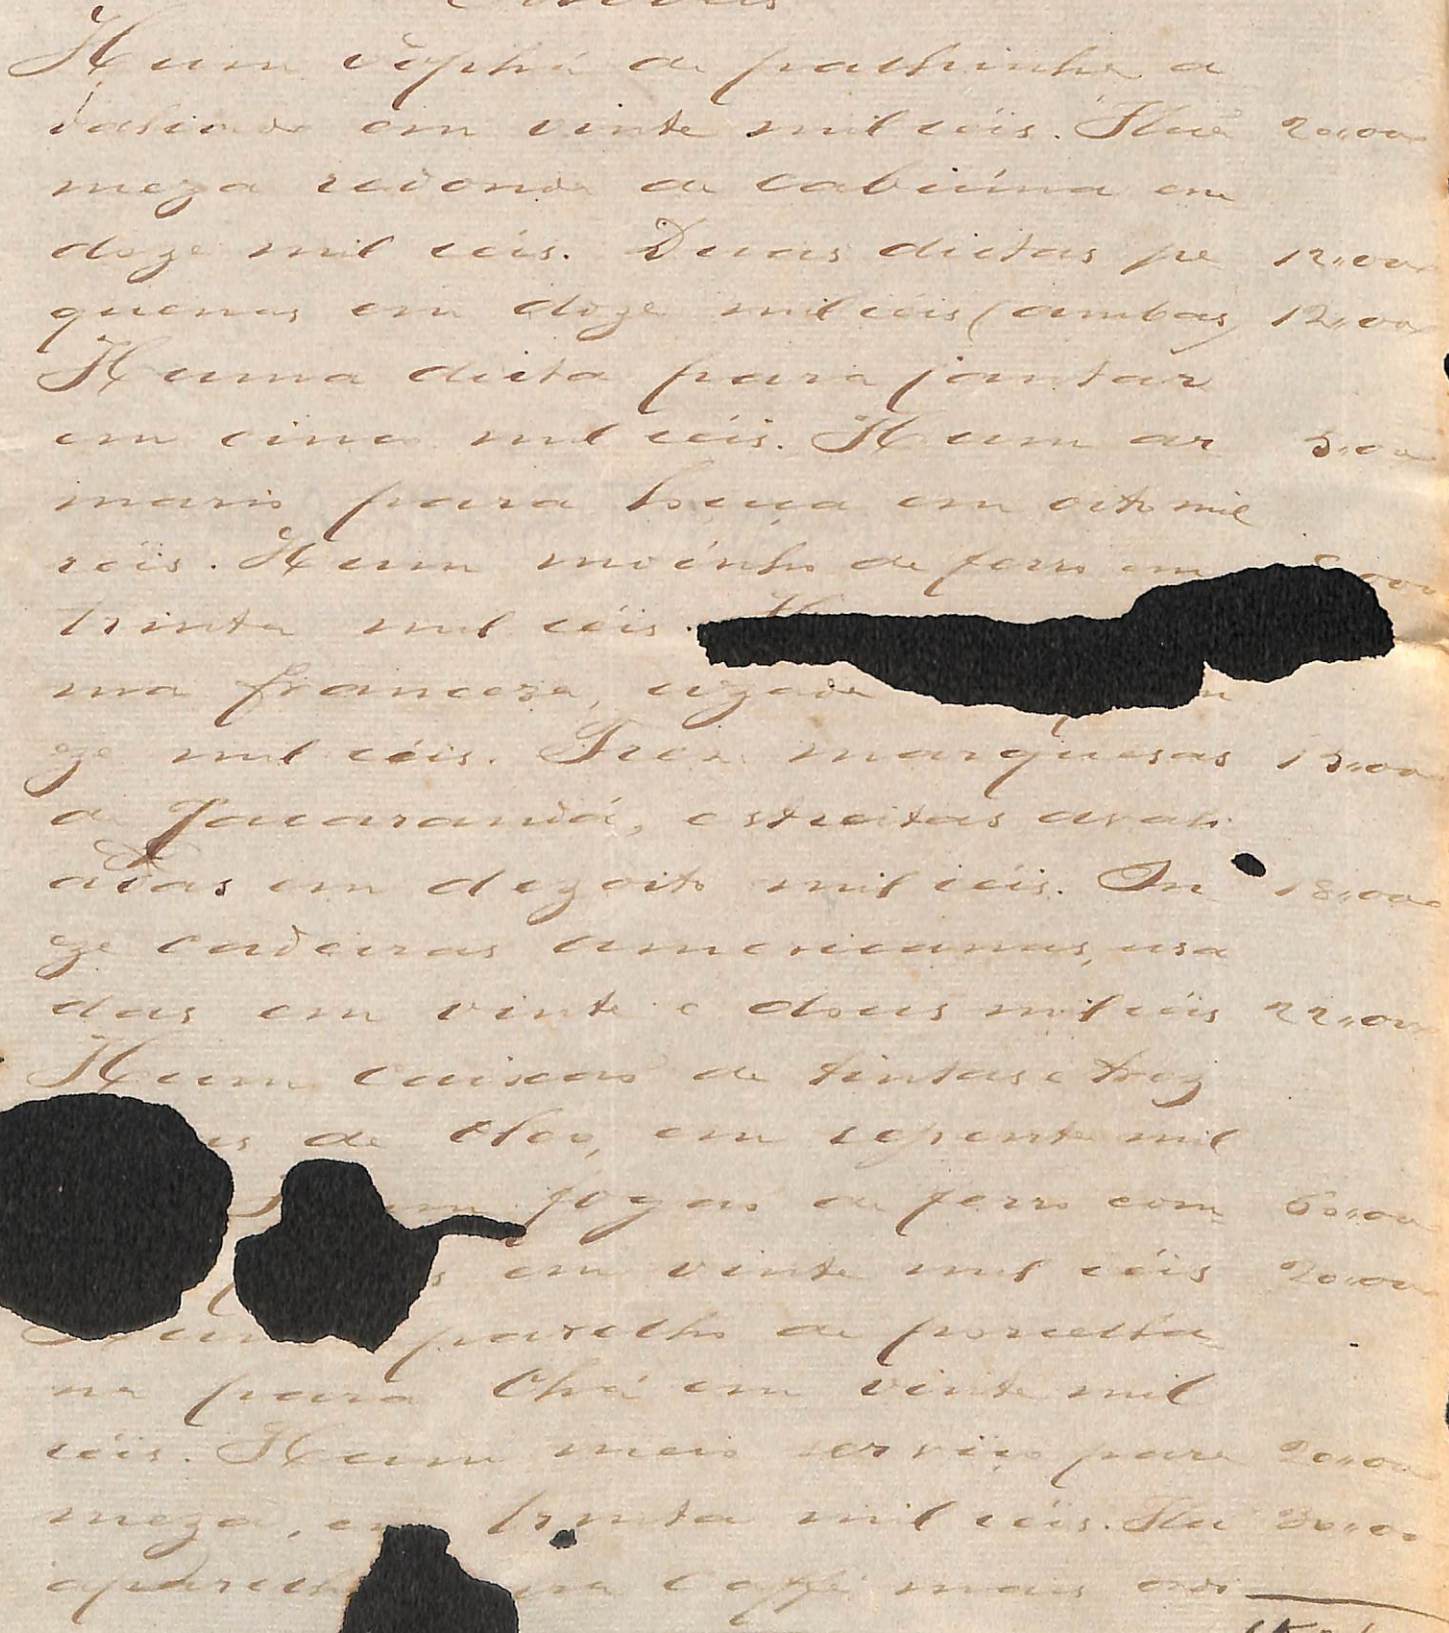 Moveis
Hum sophá de palhinha a
valiado em vinte mil réis. Hua 20,,000
meza redonda de cabiúna em
doze mil réis. Duas dictas pe 12,,000
quenas em doze mil réis (ambas) 12,,000
Huma dicta para jantar
em cinco mil réis. Hum ar 5,,000
mario para louça em oito mil
réis. Hum moinho de ferro em 8,,000
trinta mil réis.
ma franceza, uzada
ze mil réis. Trez marquesas 15,,000
de Jacarandá, estreitas avali
adas em dezoito mil réis. On 18,,000
ze cadeiras americanas, usa
das em vinte e dous mil réis 22,,000
Hum caixão de tintas e trez
de oleo, em sessenta mil
fogão de ferro com 60,,000
em vinte mil réis 20,,000
parelho de porcella
na para Chá em vinte mil
réis. Hum meio serviço para 20,,000
meza, em trinta mil réis. Hu 30,,000
café mais ordi